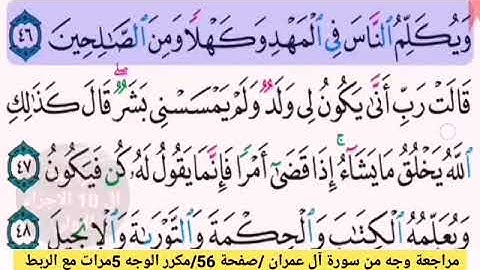 وَيُكَلِّمُ ٱلنَّاسَ فِي ٱلْمَهْدِ وَكَهْلًا وَمِنَ ٱلصَّٰلِحِينَ ٤٦
قَالَتْ رَبِّ أَنَّىٰ يَكُونُ لِي وَلَدٌ وَلَمْ يَمْسَسْنِي بَشَرٌۖ قَالَ كَذَٰلِكِ
ٱللَّهُ يَخْلُقُ مَا يَشَآءُۚ إِذَا قَضَىٰٓ أَمْرًا فَإِنَّمَا يَقُولُ لَهُۥ كُن فَيَكُونُ ٤٧
وَيُعَلِّمُهُ ٱلْكِتَٰبَ وَٱلْحِكْمَةَ وَٱلتَّوْرَىٰةَ وَٱلْإِنجِيلَ ٤٨
مراجعة وجه من سورة آل عمران /صفحة 56/مكرر الوجه 5مرات مع الربط